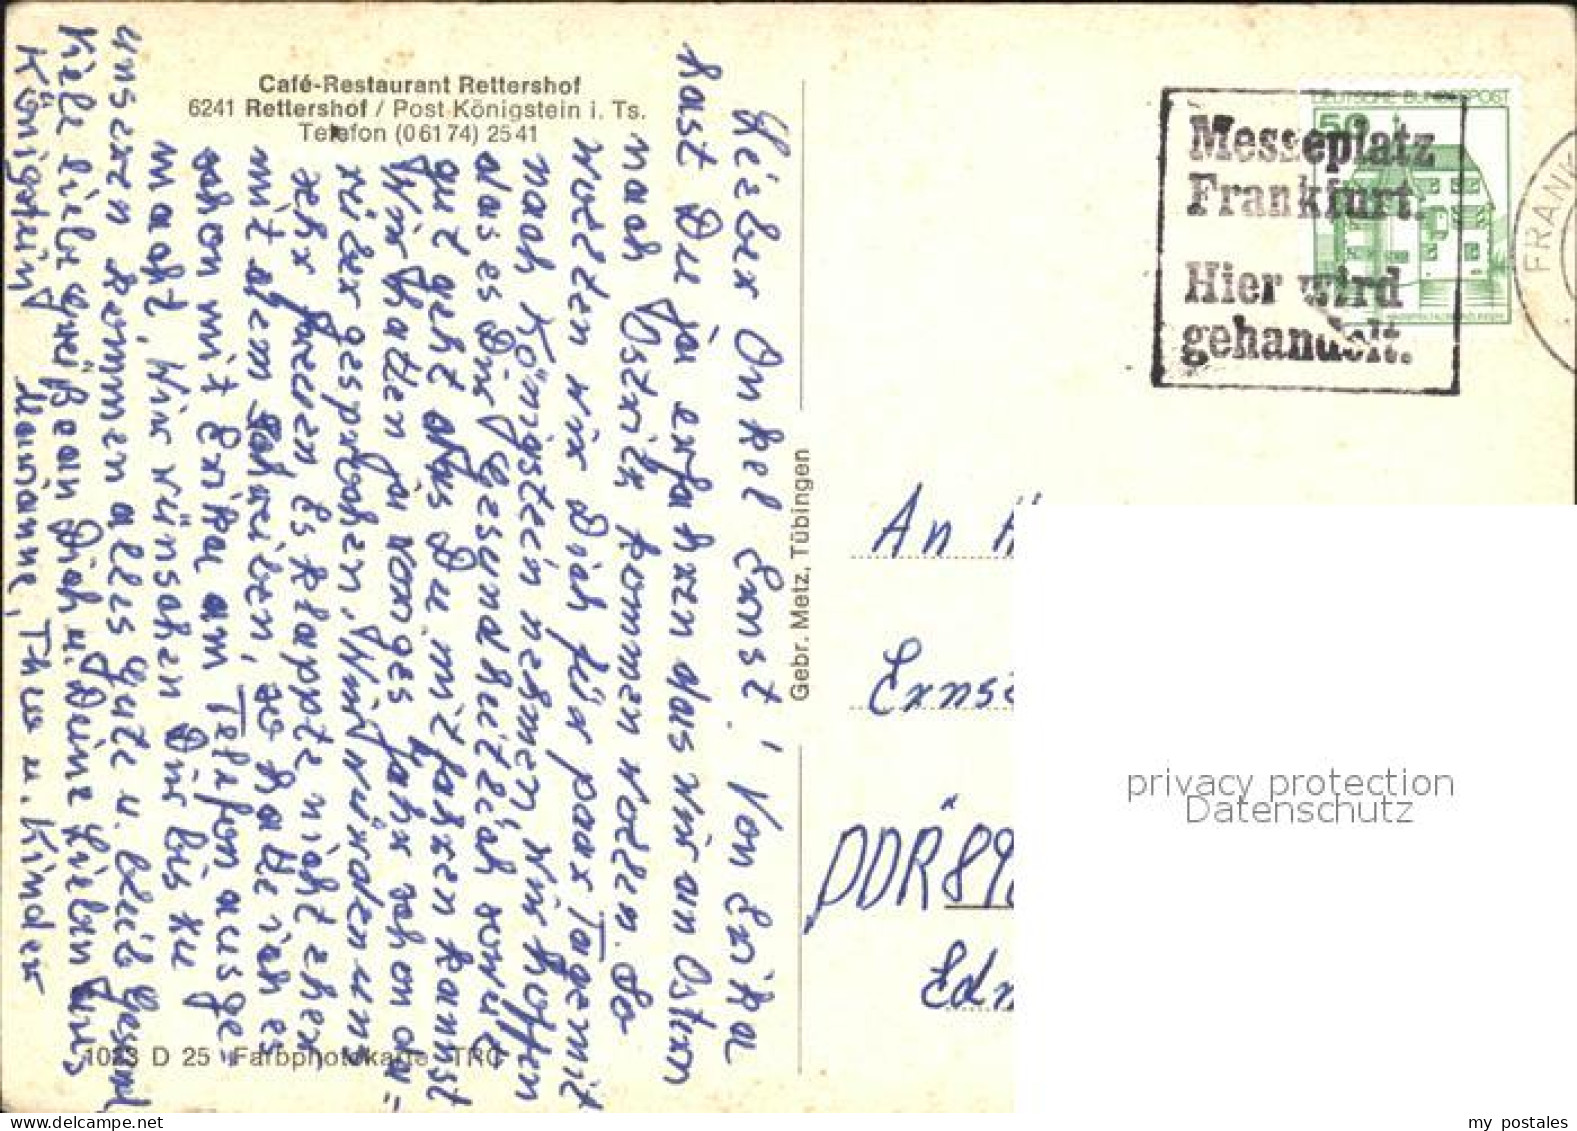 Café-Restaurant Rettershof
6241 Rettershof / Post Königstein i. Ts.
Telefon (06174) 2541
Lieber Onkel Ernst! Von Erika
hast Du ja erfahren das wir an Ostern
nach Östrich kommen wollen. Da
wollten wir Dich für paar Tage mit
nach Königstein nehmen, wir hoffen
das es Dir Gesundheitlich so
gut geht das Du mitfahren kannst
Wir hatten ja voriges Jahr schon da=
rüber gesprochen, Wir würden uns
sehr freuen, es klappte nicht eher
mit dem schreiben, so habe ich es
schon mit Erika am Telefon ausge-
macht, Wir wünschen Dir bis zu
unserem kommen alles Gute u. bleib Gesund
Viele liebe Grüße an Dich u. Deine Lieben
Königstein, Marianne, Theo u. Kinder
1023 D 25 Farbphotokarte TRC
Gebr. Metz, Tübingen
DEUTSCHE BUNDESPOST
50
Messeplatz
Frankfurt.
Hier wird
gehandelt.
An
DDR 89
privacy protection
Datenschutz
my postales
www.delcampe.net